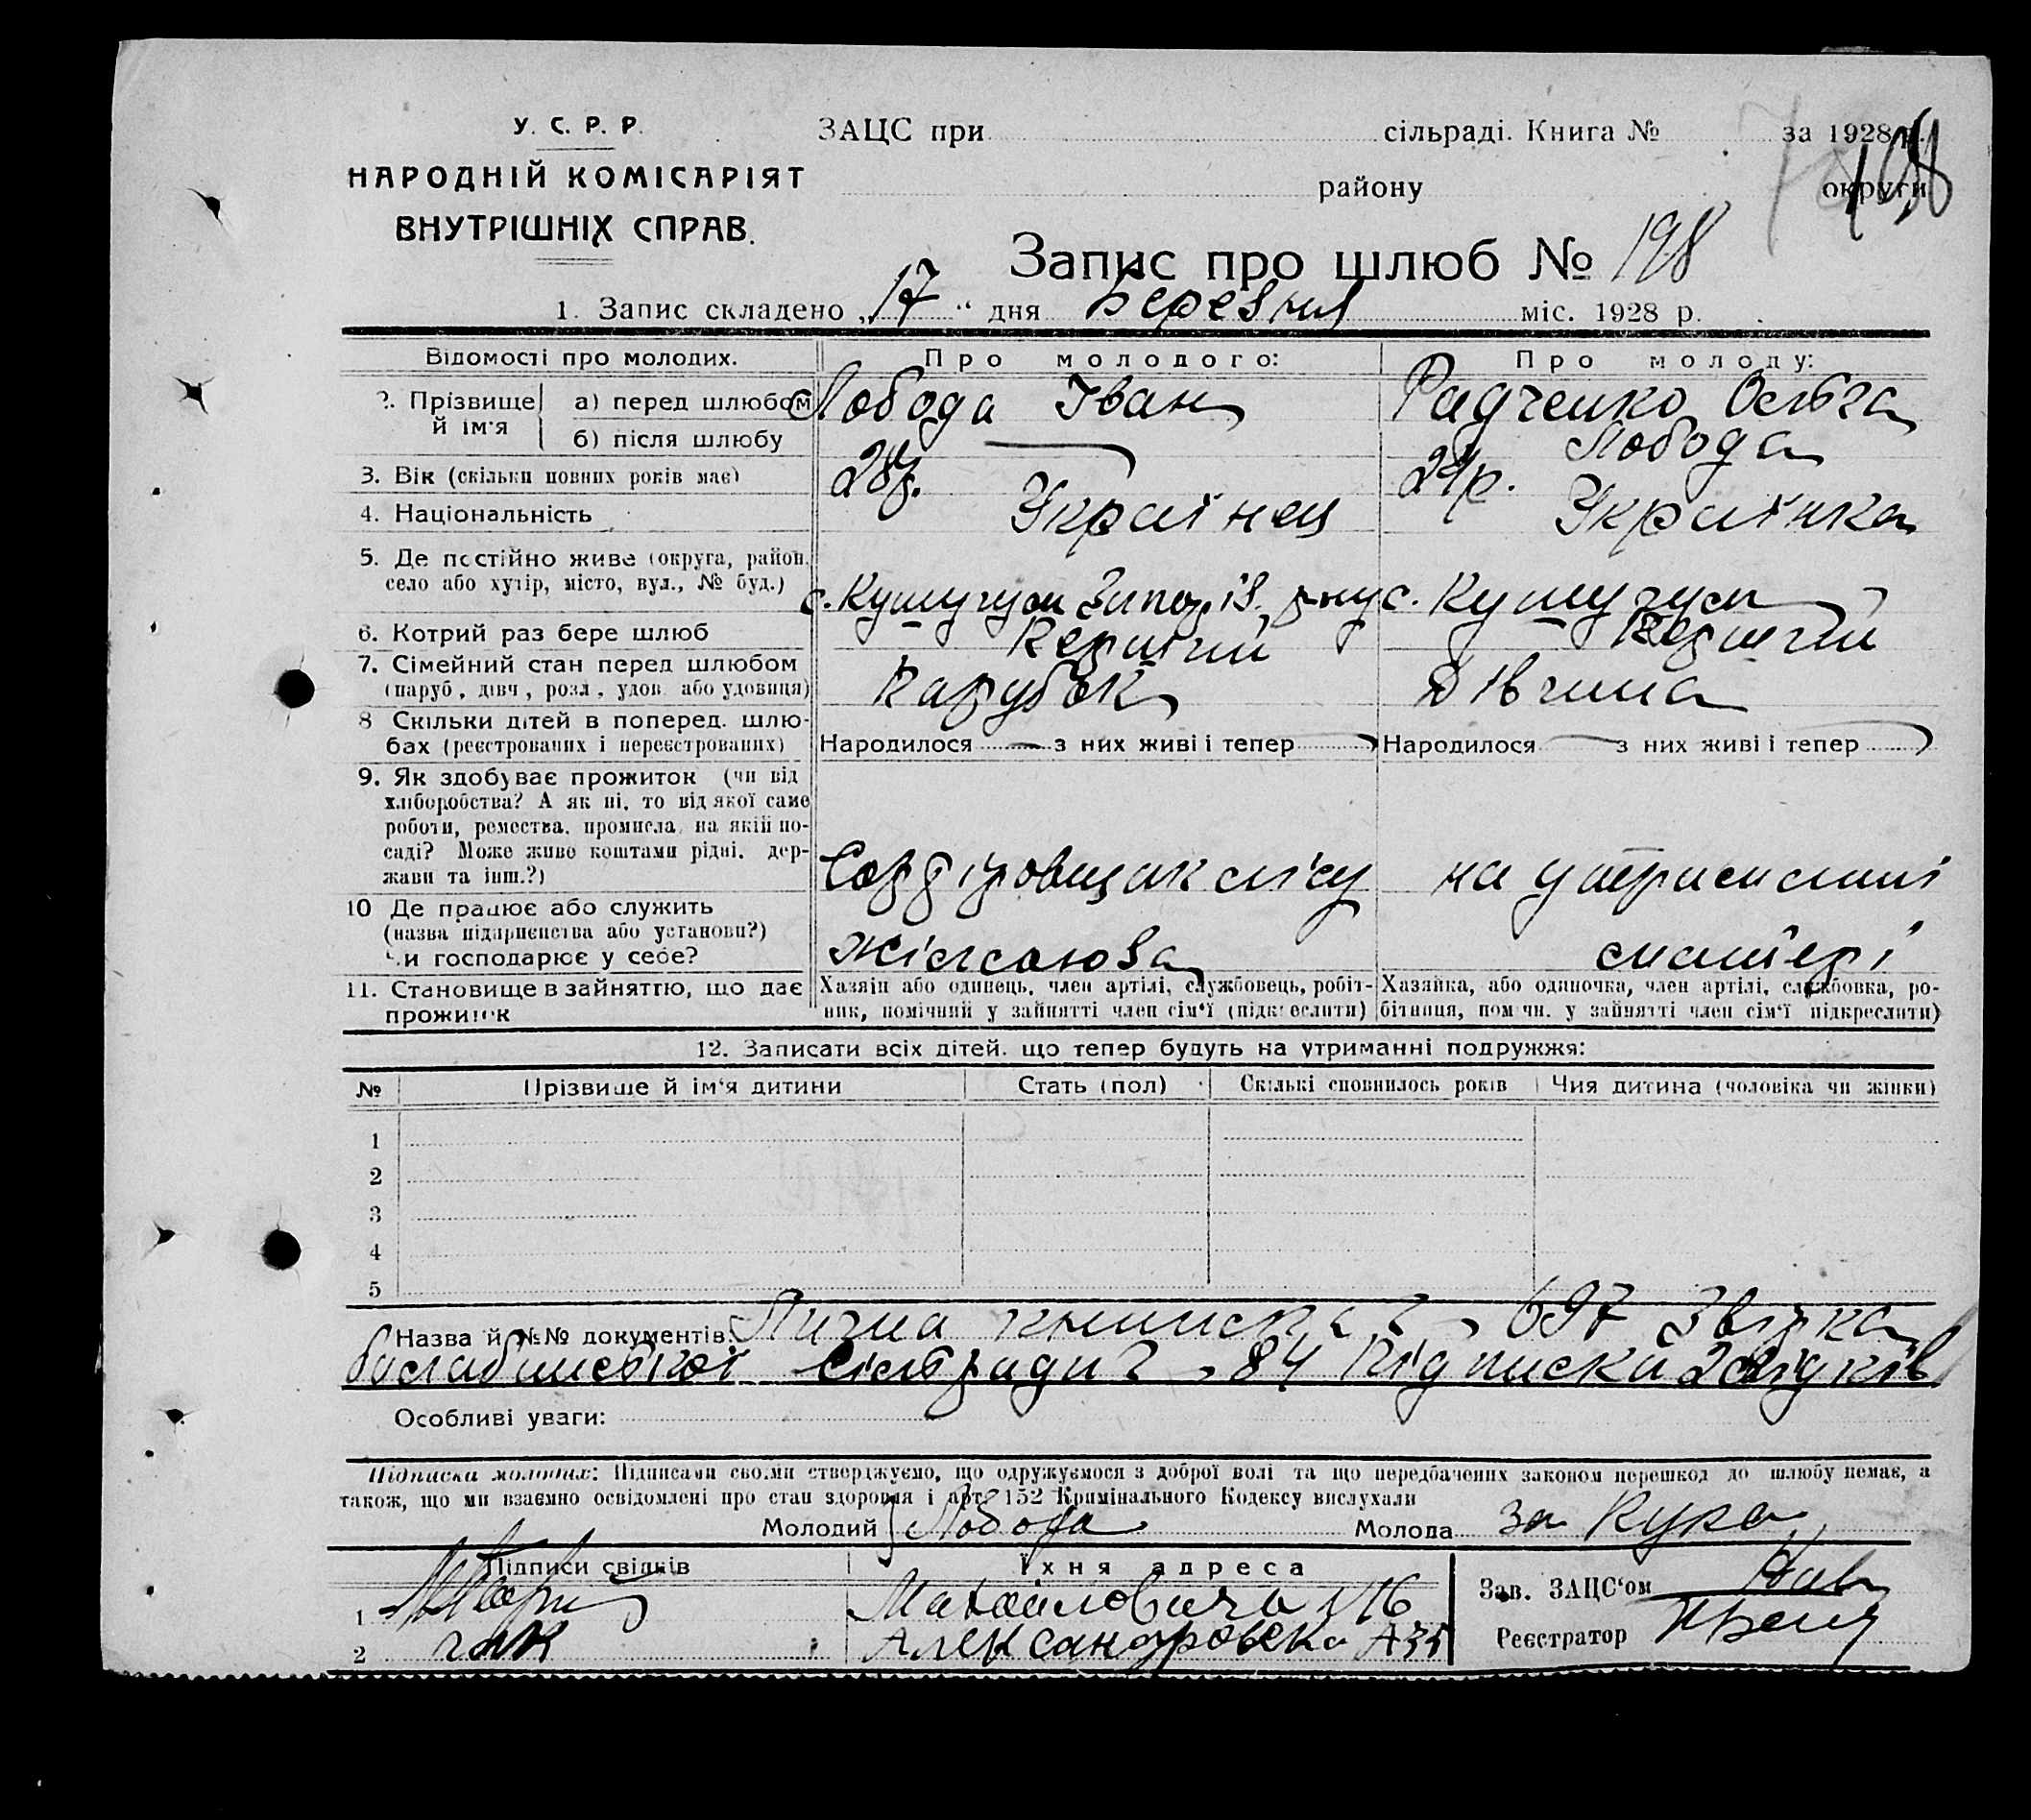 У. С. Р. Р.
НАРОДНІЙ КОМІСАРІЯТ
ВНУТРІШНІХ СПРАВ.
ЗАЦС при сільраді. Книга № за 1928 р.
району округи
198
Запис про шлюб № 198
1. Запис складено „17“ дня Березня міс. 1928 р.
Відомості про молодих. Про молодого: Про молоду:
2. Прізвище й ім'я а) перед шлюбом Лобода Іван Радченко Ольга
б) після шлюбу Лобода
3. Вік (скільки повних років має) 28 р. 24 р.
4. Національність Українец Українка
5. Де постійно живе (округа, район, село або хутір, місто, вул., № буд.) с. Кушугум Запоріз. р-ну с. Кушугум
6. Котрий раз бере шлюб Перший Перший
7. Сімейний стан перед шлюбом (паруб., дівч., розл., удов. або удовиця) Парубок Дівчина
8 Скільки дітей в поперед. шлюбах (реєстрованих і нереєстрованих) Народилося — з них живі і тепер Народилося — з них живі і тепер
9. Як здобуває прожиток (чи від хліборобства? А як ні, то від якої саме роботи, ремества, промисла, на якій посаді? Може живе коштами рідні, держави та інш.?) лісу на утриманні
10 Де працює або служить (назва підприємства або установи?) Чи господарює у себе? матері
11. Становище в зайняттю, що дає прожиток
Хазяїн або одинець, член артілі, службовець, робітник, помічний у зайнятті член сім'ї (підкреслити)
Хазяйка, або одиночка, член артілі, службовка, робітниця, помічн. у зайнятті член сім'ї підкреслити)
12. Записати всіх дітей, що тепер будуть на утриманні подружжя:
№ Прізвище й ім'я дитини Стать (пол) Скількі сповнилось років Чия дитина (чоловіка чи жінки)
1
2
3
4
5
Назва й №№ документів: Лична книжка 697
Балабинської Сільради 84 Підписка 2 свідків
Особливі уваги:
Підписка молодих: Підписами своїми стверджуємо, що одружуємося з доброї волі та що передбачених законом перешкод до шлюбу немає, а
також, що ми взаємно освідомлені про стан здоровля і арт. 152 Кримінального Кодексу вислухали
Молодий Лобода Молода за
Підписи свідків Їхня адреса Зав. ЗАЦС'ом
1
2 Реєстратор